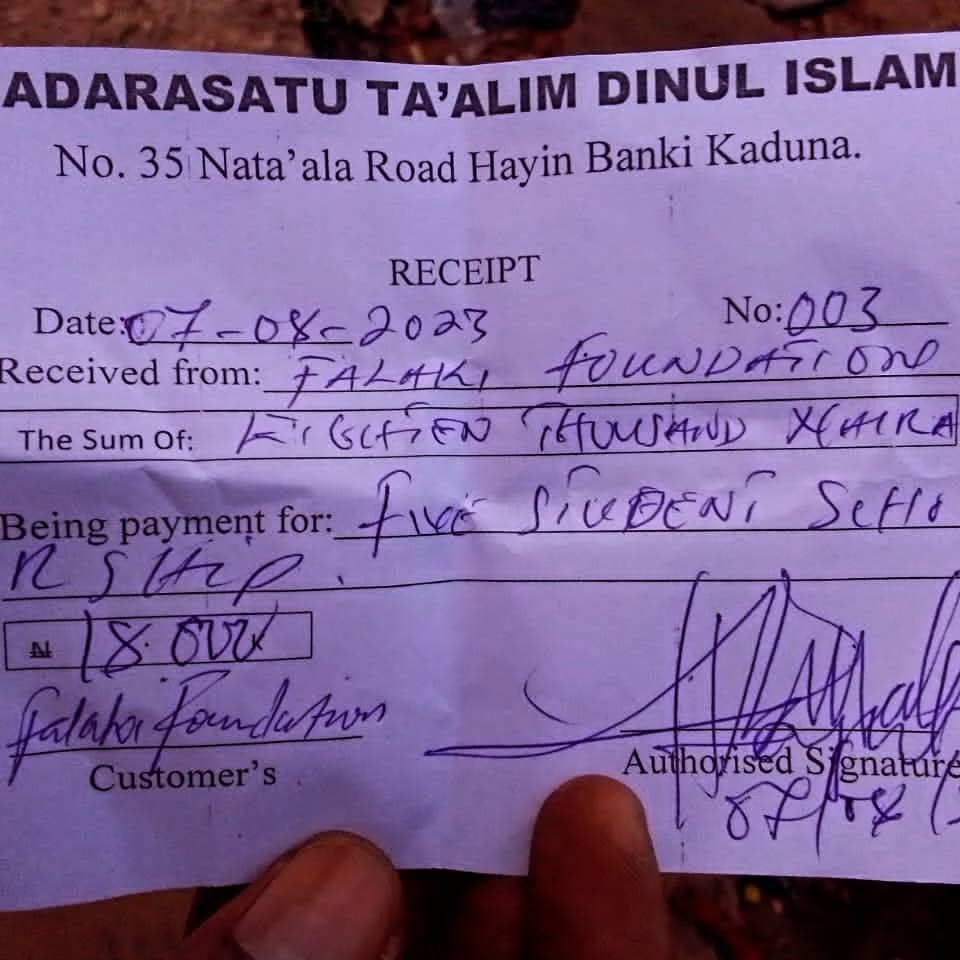 ADARASATU TA'ALIM DINUL ISLAM
No. 35 Nata'ala Road Hayin Banki Kaduna.
RECEIPT
Date: 07-08-2023 No: 003
Received from: FALAKI FOUNDATION
The Sum Of: EIGHTEEN THOUSAND NAIRA
Being payment for: five STUDENT SCHO
RSHIP.
₦ 18.000
Falaki Foundation
Customer's
Authorised Signature
07/08/